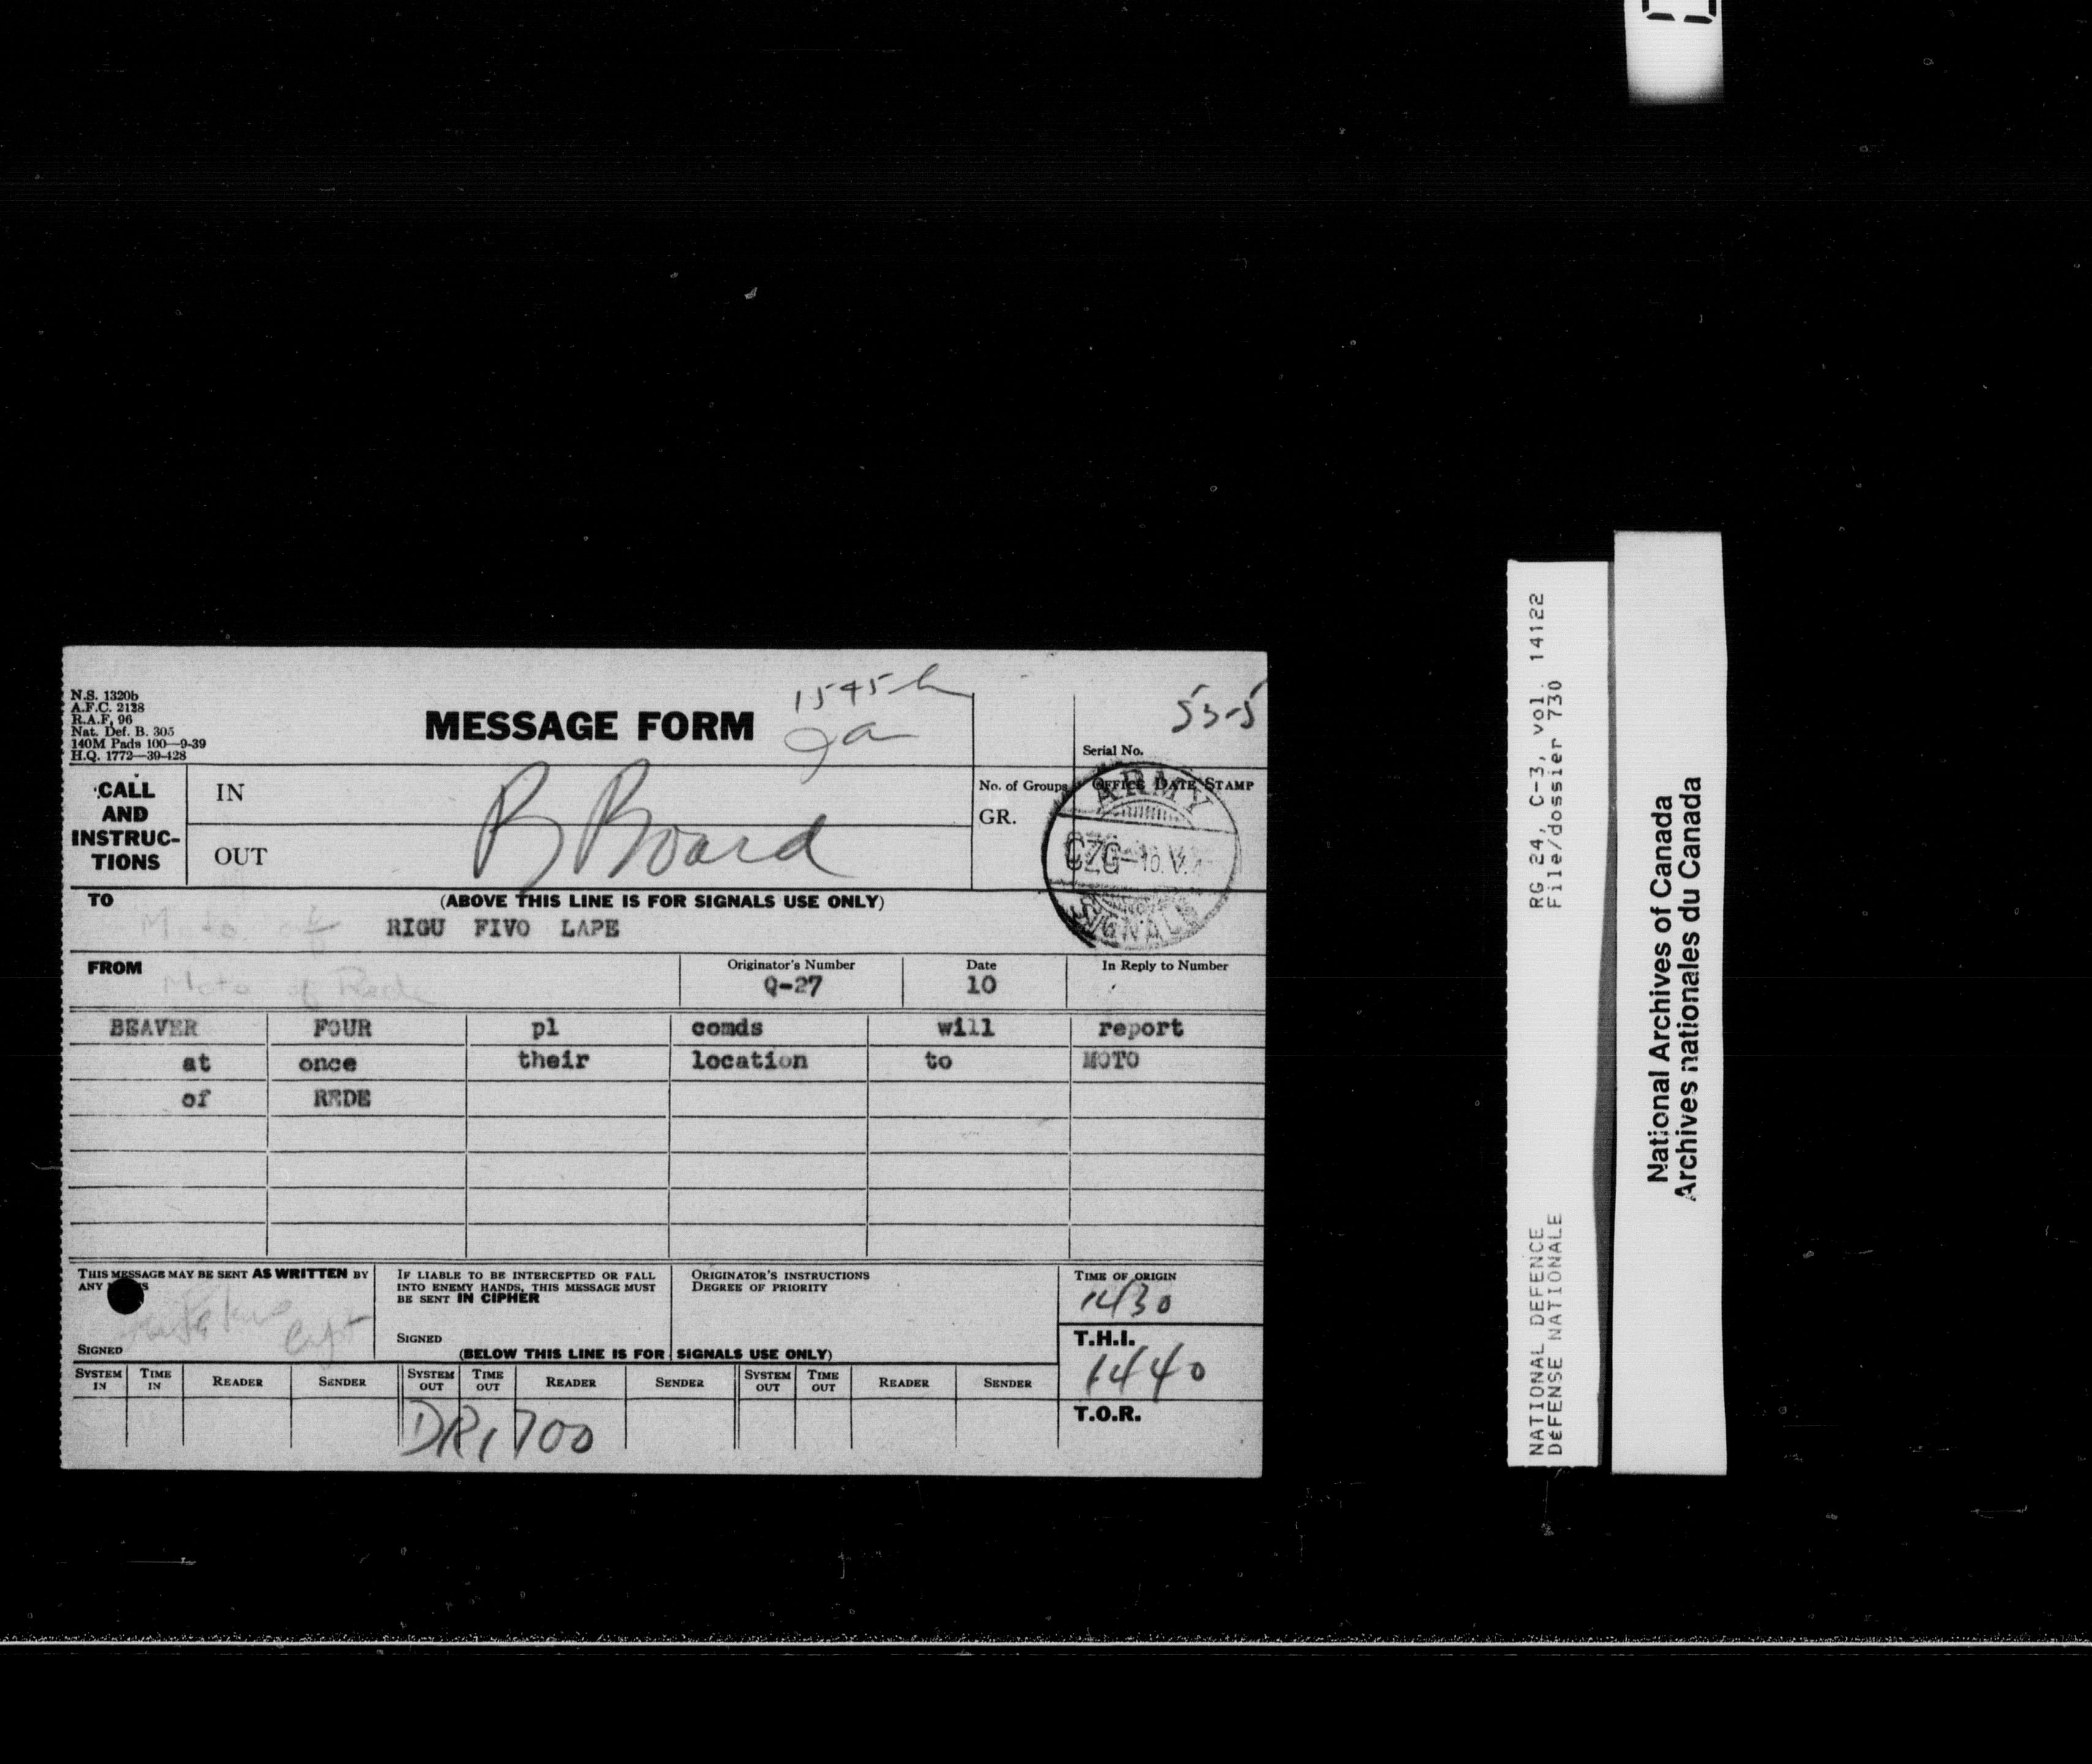 N.S. 1320b
A.F.C. 2128
R.A.F. 96
Nat. Def. B. 305
140M Pads 100—9-39
H.Q. 1772—39-428
MESSAGE FORM
1545h
Serial No.
53-5
CALL AND INSTRUC-TIONS
IN
OUT
B Board
No. of Groups
GR.
OFFICE DATE STAMP
ARMY
CZG-10.V.
SIGNALS
TO
(ABOVE THIS LINE IS FOR SIGNALS USE ONLY)
Moto of
RIGU FIVO LAPE
FROM
Moto of Rede
Originator's Number
Q-27
Date
10
In Reply to Number
BEAVER FOUR pl comds will report
at once their location to MOTO
of REDE
THIS MESSAGE MAY BE SENT AS WRITTEN BY
ANY
SIGNED
Capt
IF LIABLE TO BE INTERCEPTED OR FALL
INTO ENEMY HANDS, THIS MESSAGE MUST
BE SENT IN CIPHER
SIGNED
ORIGINATOR'S INSTRUCTIONS
DEGREE OF PRIORITY
TIME OF ORIGIN
1430
T.H.I.
1440
T.O.R.
(BELOW THIS LINE IS FOR SIGNALS USE ONLY)
SYSTEM IN TIME IN READER SENDER SYSTEM OUT TIME OUT READER SENDER SYSTEM OUT TIME OUT READER SENDER
DR 1700
RG 24, C-3, vol. 14122
File/dossier 730
NATIONAL DEFENCE
DÉFENSE NATIONALE
National Archives of Canada
Archives nationales du Canada